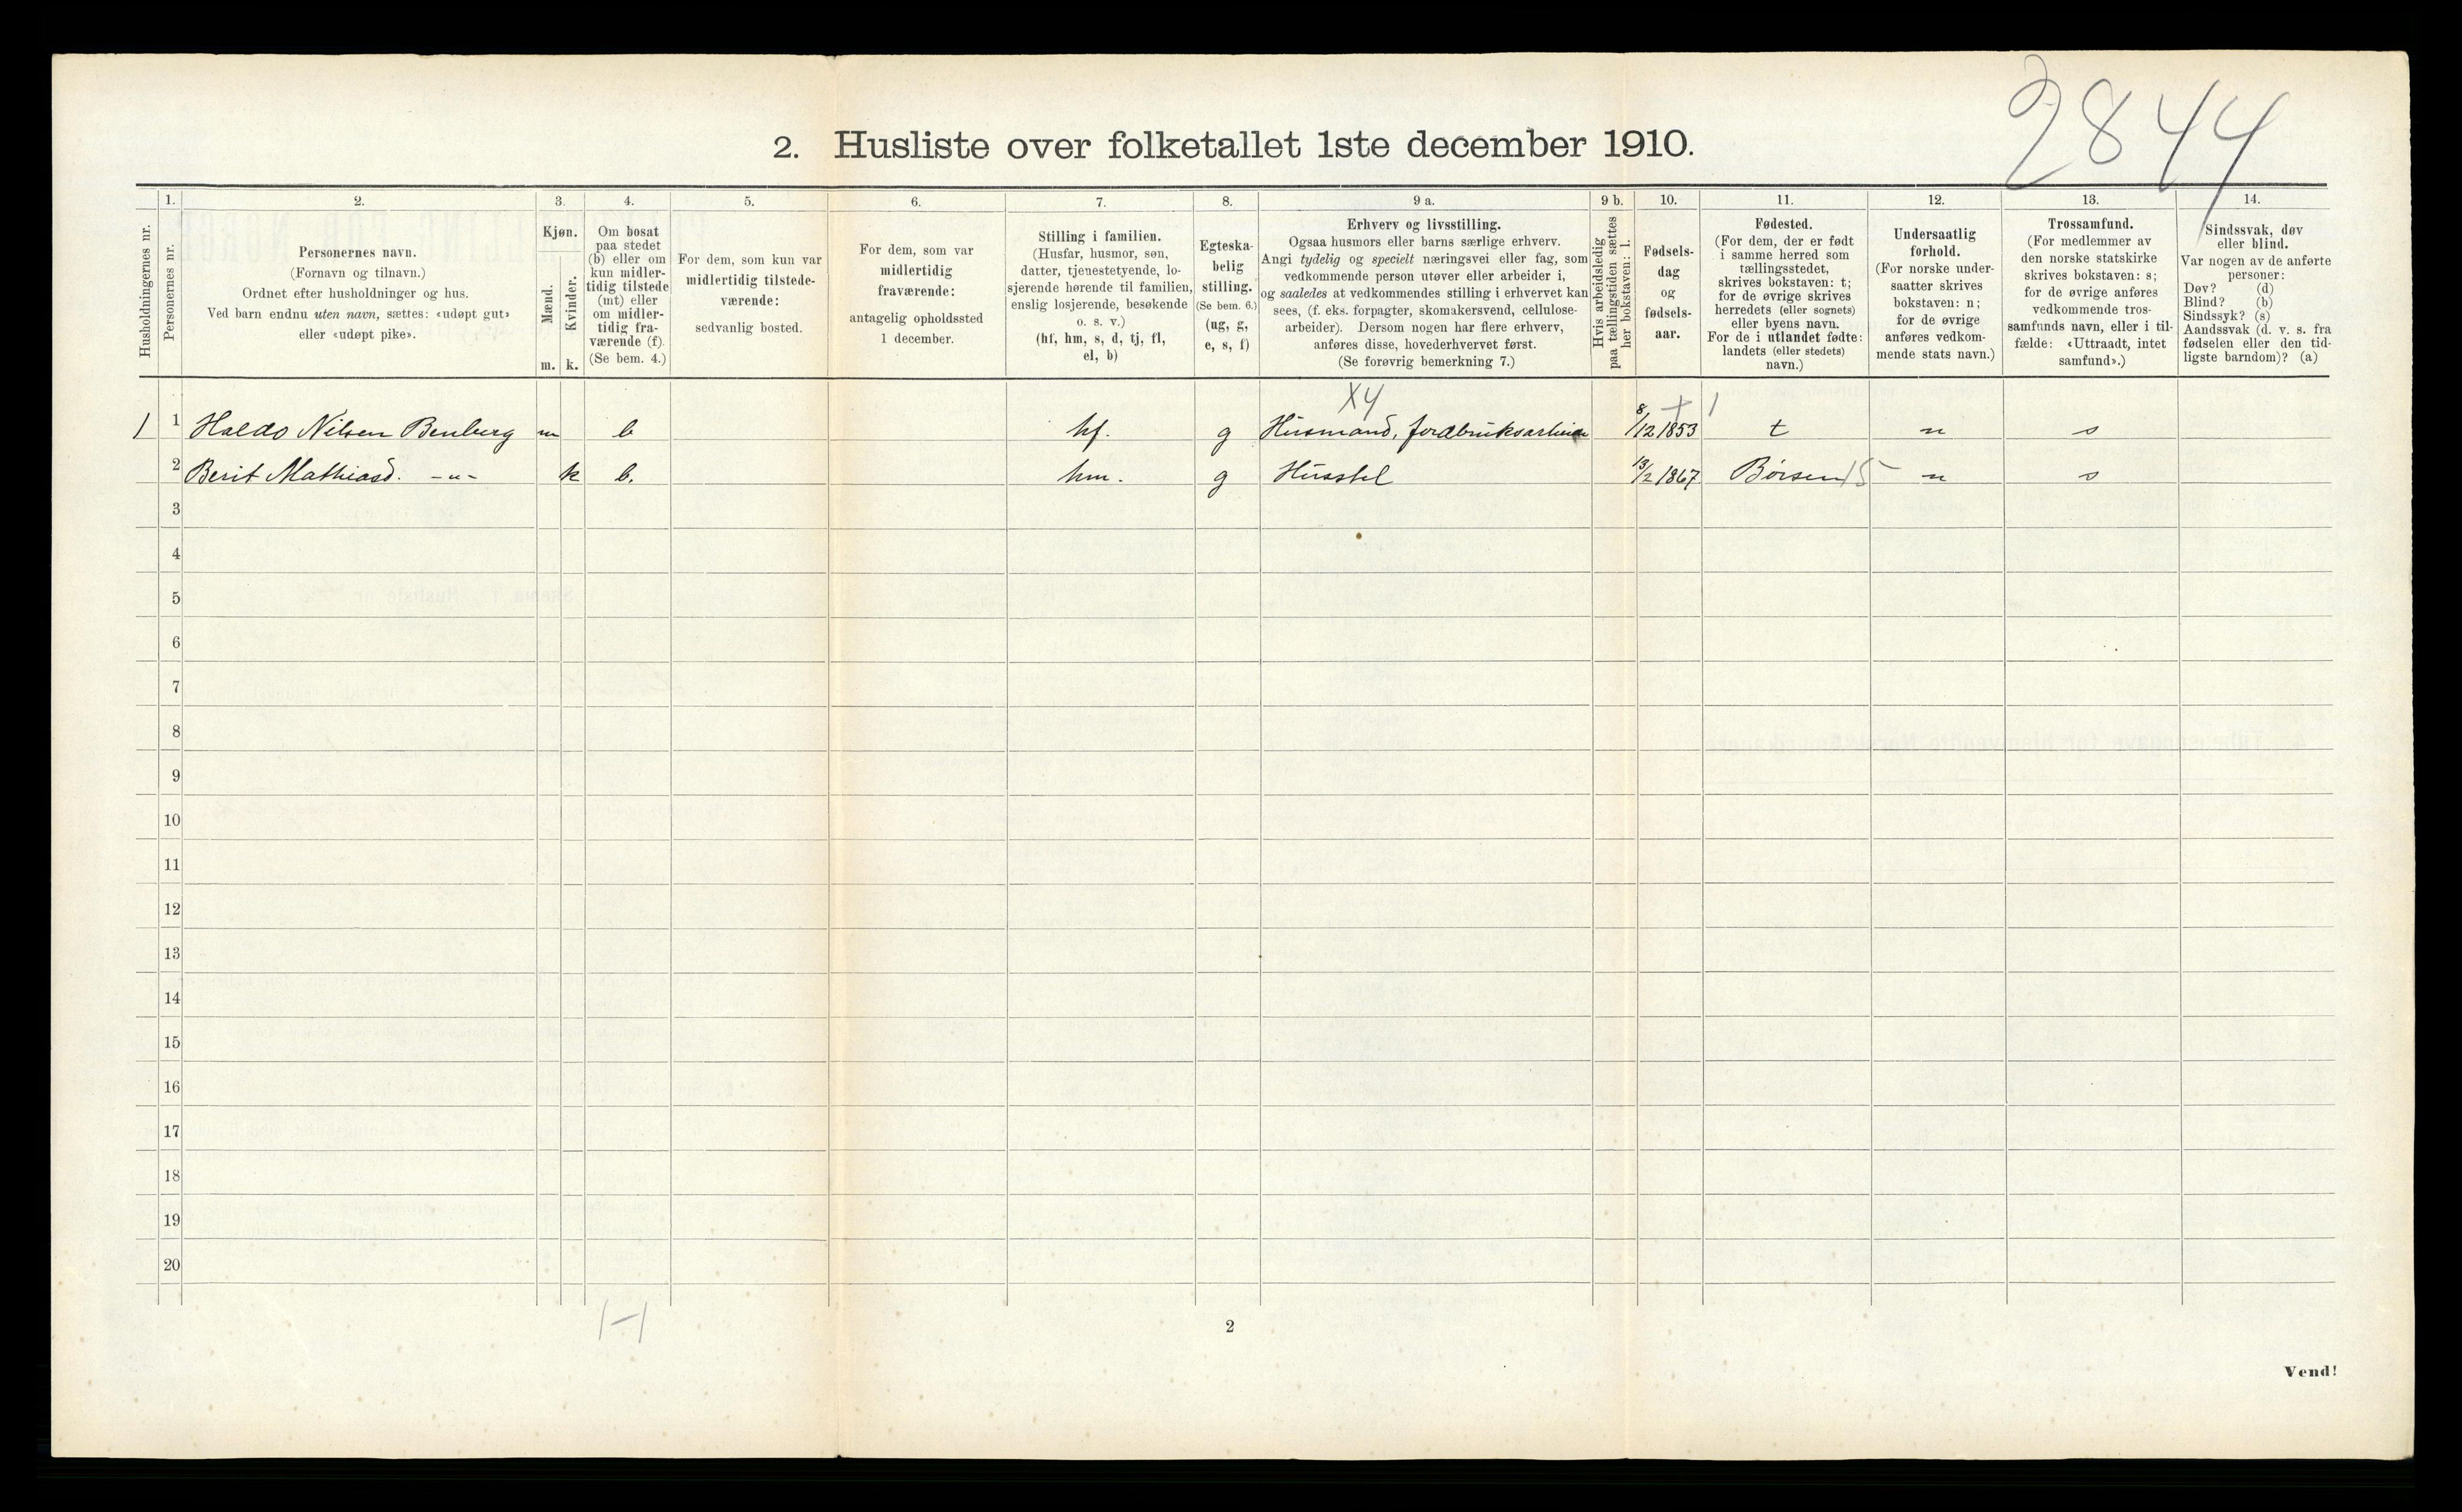 2844
2. Husliste over folketallet 1ste december 1910.
Husholdningernes nr.
1.
Personernes nr.
2.
Personernes navn.
(Fornavn og tilnavn.)
Ordnet efter husholdninger og hus.
Ved barn endnu uten navn, sættes: «udøpt gut»
eller «udøpt pike».
3.
Kjøn.
Mænd.
Kvinder.
m. k.
4.
Om bosat
paa stedet
(b) eller om
kun midler-
tidig tilstede
(mt) eller
om midler-
tidig fra-
værende (f).
(Se bem. 4.)
5.
For dem, som kun var
midlertidig tilstede-
værende:
sedvanlig bosted.
6.
For dem, som var
midlertidig
fraværende:
antagelig opholdssted
1 december.
7.
Stilling i familien.
(Husfar, husmor, søn,
datter, tjenestetyende, lo-
sjerende hørende til familien,
enslig losjerende, besøkende
o. s. v.)
(hf, hm, s, d, tj, fl,
el, b)
8.
Egteska-
belig
stilling.
(Se bem. 6.)
(ug, g,
e, s, f)
9 a.
Erhverv og livsstilling.
Ogsaa husmors eller barns særlige erhverv.
Angi tydelig og specielt næringsvei eller fag, som
vedkommende person utøver eller arbeider i,
og saaledes at vedkommendes stilling i erhvervet kan
sees, (f. eks. forpagter, skomakersvend, cellulose-
arbeider). Dersom nogen har flere erhverv,
anføres disse, hovederhvervet først.
(Se forøvrig bemerkning 7.)
9 b.
Hvis arbeidsledig
paa tællingstiden sættes
her bokstaven: l.
10.
Fødsels-
dag
og
fødsels-
aar.
11.
Fødested.
(For dem, der er født
i samme herred som
tællingsstedet,
skrives bokstaven: t;
for de øvrige skrives
herredets (eller sognets)
eller byens navn.
For de i utlandet fødte:
landets (eller stedets)
navn.)
12.
Undersaatlig
forhold.
(For norske under-
saatter skrives
bokstaven: n;
for de øvrige
anføres vedkom-
mende stats navn.)
13.
Trossamfund.
(For medlemmer av
den norske statskirke
skrives bokstaven: s;
for de øvrige anføres
vedkommende tros-
samfunds navn, eller i til-
fælde: «Uttraadt, intet
samfund».)
14.
Sindssvak, døv
eller blind.
Var nogen av de anførte
personer:
Døv? (d)
Blind? (b)
Sindssyk? (s)
Aandssvak (d. v. s. fra
fødselen eller den tid-
ligste barndom)? (a)
X4 + 1
1 1 Haldo Nilsen Benberg m b hf. g Husmand, jordbruksarbeider 8/12 1853 t n s
2 Berit Mathiasd. -"- k b. hm. g Husstel 13/2 1867 Børsen 15 n s
3
4
5
6
7
8
9
10
11
12
13
14
15
16
17
18
19
20
1-1
2
Vend!